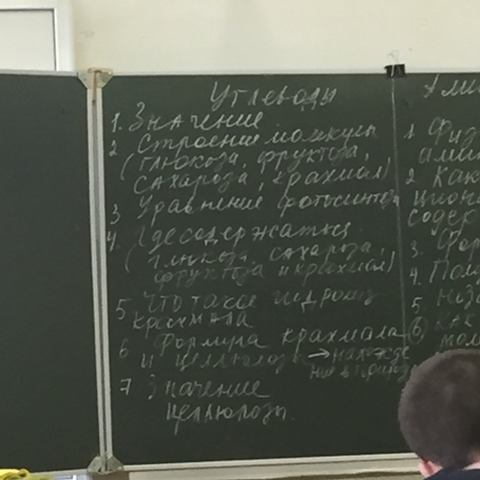 Углеводы
1. Значение
2 Строение молекулы
(глюкоза, фруктоза,
сахароза, крахмал)
3 Уравнение фотосинтеза
4. Где содержатся
(глюкоза, сахароза,
фруктоза и крахмал)
5 Что такое гидролиз
крахмала
6 Формула крахмала
и целлюлозы → нахожде
ние в природе
7 Значение
целлюлозы.
1. Физ
амин
2 Как
цион
содер
3. Фор
4. Пол
5
6 Как
мол